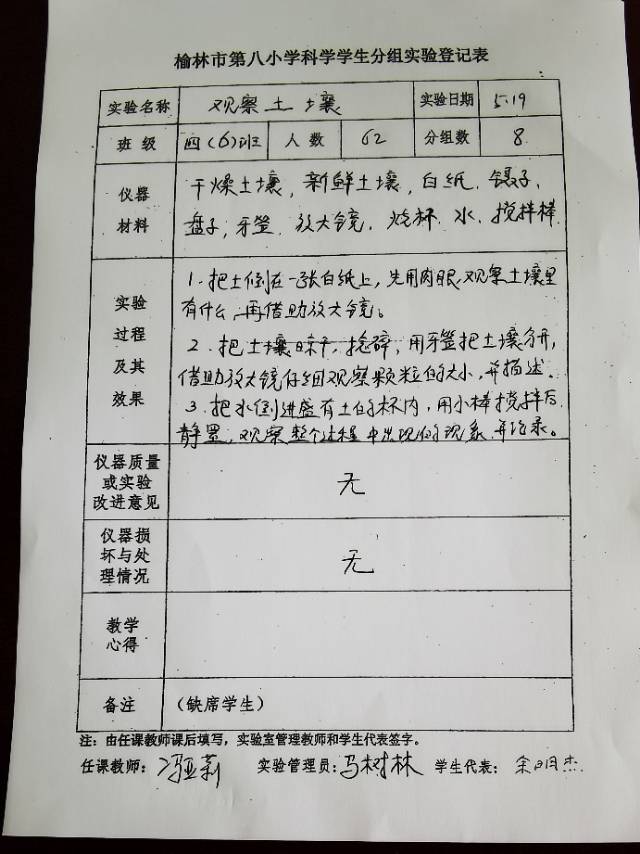 榆林市第八小学科学学生分组实验登记表
实验名称 观察土壤 实验日期 5.19
班级 四(6)班 人数 62 分组数 8
仪器
材料
干燥土壤，新鲜土壤，白纸、镊子、
盘子，牙签、放大镜、烧杯、水、搅拌棒
实验
过程
及其
效果
1、把土倒在一张白纸上，先用肉眼观察土壤里
有什么，再借助放大镜。
2、把土壤晾干，捻碎，用牙签把土壤分开，
借助放大镜仔细观察颗粒的大小，并描述。
3、把水倒进盛有土的杯内，用小棒搅拌后
静置，观察整个过程中出现的现象，并记录。
仪器质量
或实验
改进意见
无
仪器损
坏与处
理情况
无
教学
心得
备注 (缺席学生)
注：由任课教师课后填写，实验室管理教师和学生代表签字。
任课教师：冯亚莉 实验管理员：马树林 学生代表：余明杰